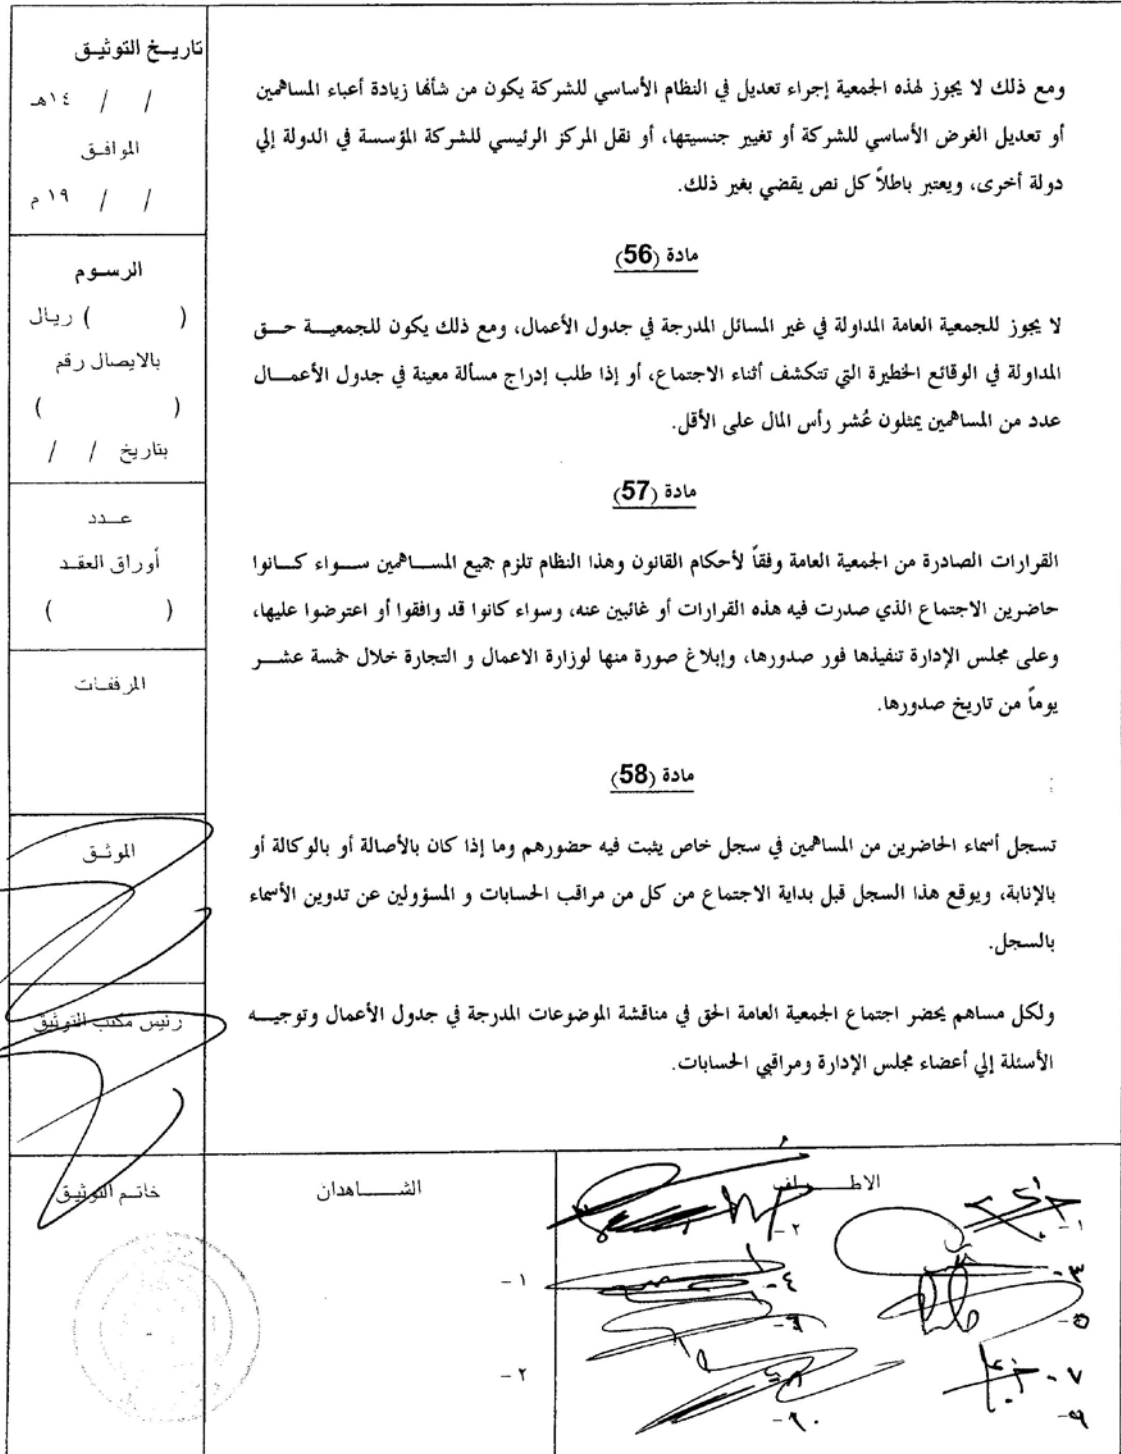 ومع ذلك لا يجوز لهذه الجمعية إجراء تعديل في النظام الأساسي للشركة يكون من شأنها زيادة أعباء المساهمين
أو تعديل الغرض الأساسي للشركة أو تغيير جنسيتها، أو نقل المركز الرئيسي للشركة المؤسسة في الدولة إلي
دولة أخرى، ويعتبر باطلاً كل نص يقضي بغير ذلك.
مادة (56)
لا يجوز للجمعية العامة المداولة في غير المسائل المدرجة في جدول الأعمال، ومع ذلك يكون للجمعيـــة حـــق
المداولة في الوقائع الخطيرة التي تتكشف أثناء الاجتماع، أو إذا طلب إدراج مسألة معينة في جدول الأعمـــال
عدد من المساهمين يمثلون عُشر رأس المال على الأقل.
مادة (57)
القرارات الصادرة من الجمعية العامة وفقاً لأحكام القانون وهذا النظام تلزم جميع المســـاهمين ســـواء كـــانوا
حاضرين الاجتماع الذي صدرت فيه هذه القرارات أو غائبين عنه، وسواء كانوا قد وافقوا أو اعترضوا عليها،
وعلى مجلس الإدارة تنفيذها فور صدورها، وإبلاغ صورة منها لوزارة الاعمال و التجارة خلال خمسة عشـــر
يوماً من تاريخ صدورها.
مادة (58)
تسجل أسماء الحاضرين من المساهمين في سجل خاص يثبت فيه حضورهم وما إذا كان بالأصالة أو بالوكالة أو
بالإنابة، ويوقع هذا السجل قبل بداية الاجتماع من كل من مراقب الحسابات و المسؤولين عن تدوين الأسماء
بالسجل.
ولكل مساهم يحضر اجتماع الجمعية العامة الحق في مناقشة الموضوعات المدرجة في جدول الأعمال وتوجيـــه
الأسئلة إلي أعضاء مجلس الإدارة ومراقبي الحسابات.
تاريـخ التوثيـق
/ / ١٤هـ
الموافـق
/ / ١٩ م
الرسـوم
( ) ريـال
بالايصال رقم
( )
بتاريخ / /
عـــدد
أوراق العقـد
( )
المرفقـات
الموثـق
رئيس مكتب التوثيق
خاتـم التوثيق
الشـــــاهدان
١ -
٢ -
الاطـــــراف
١ -
٢ -
٣ -
٤ -
٥ -
٦ -
٧ -
٩ -